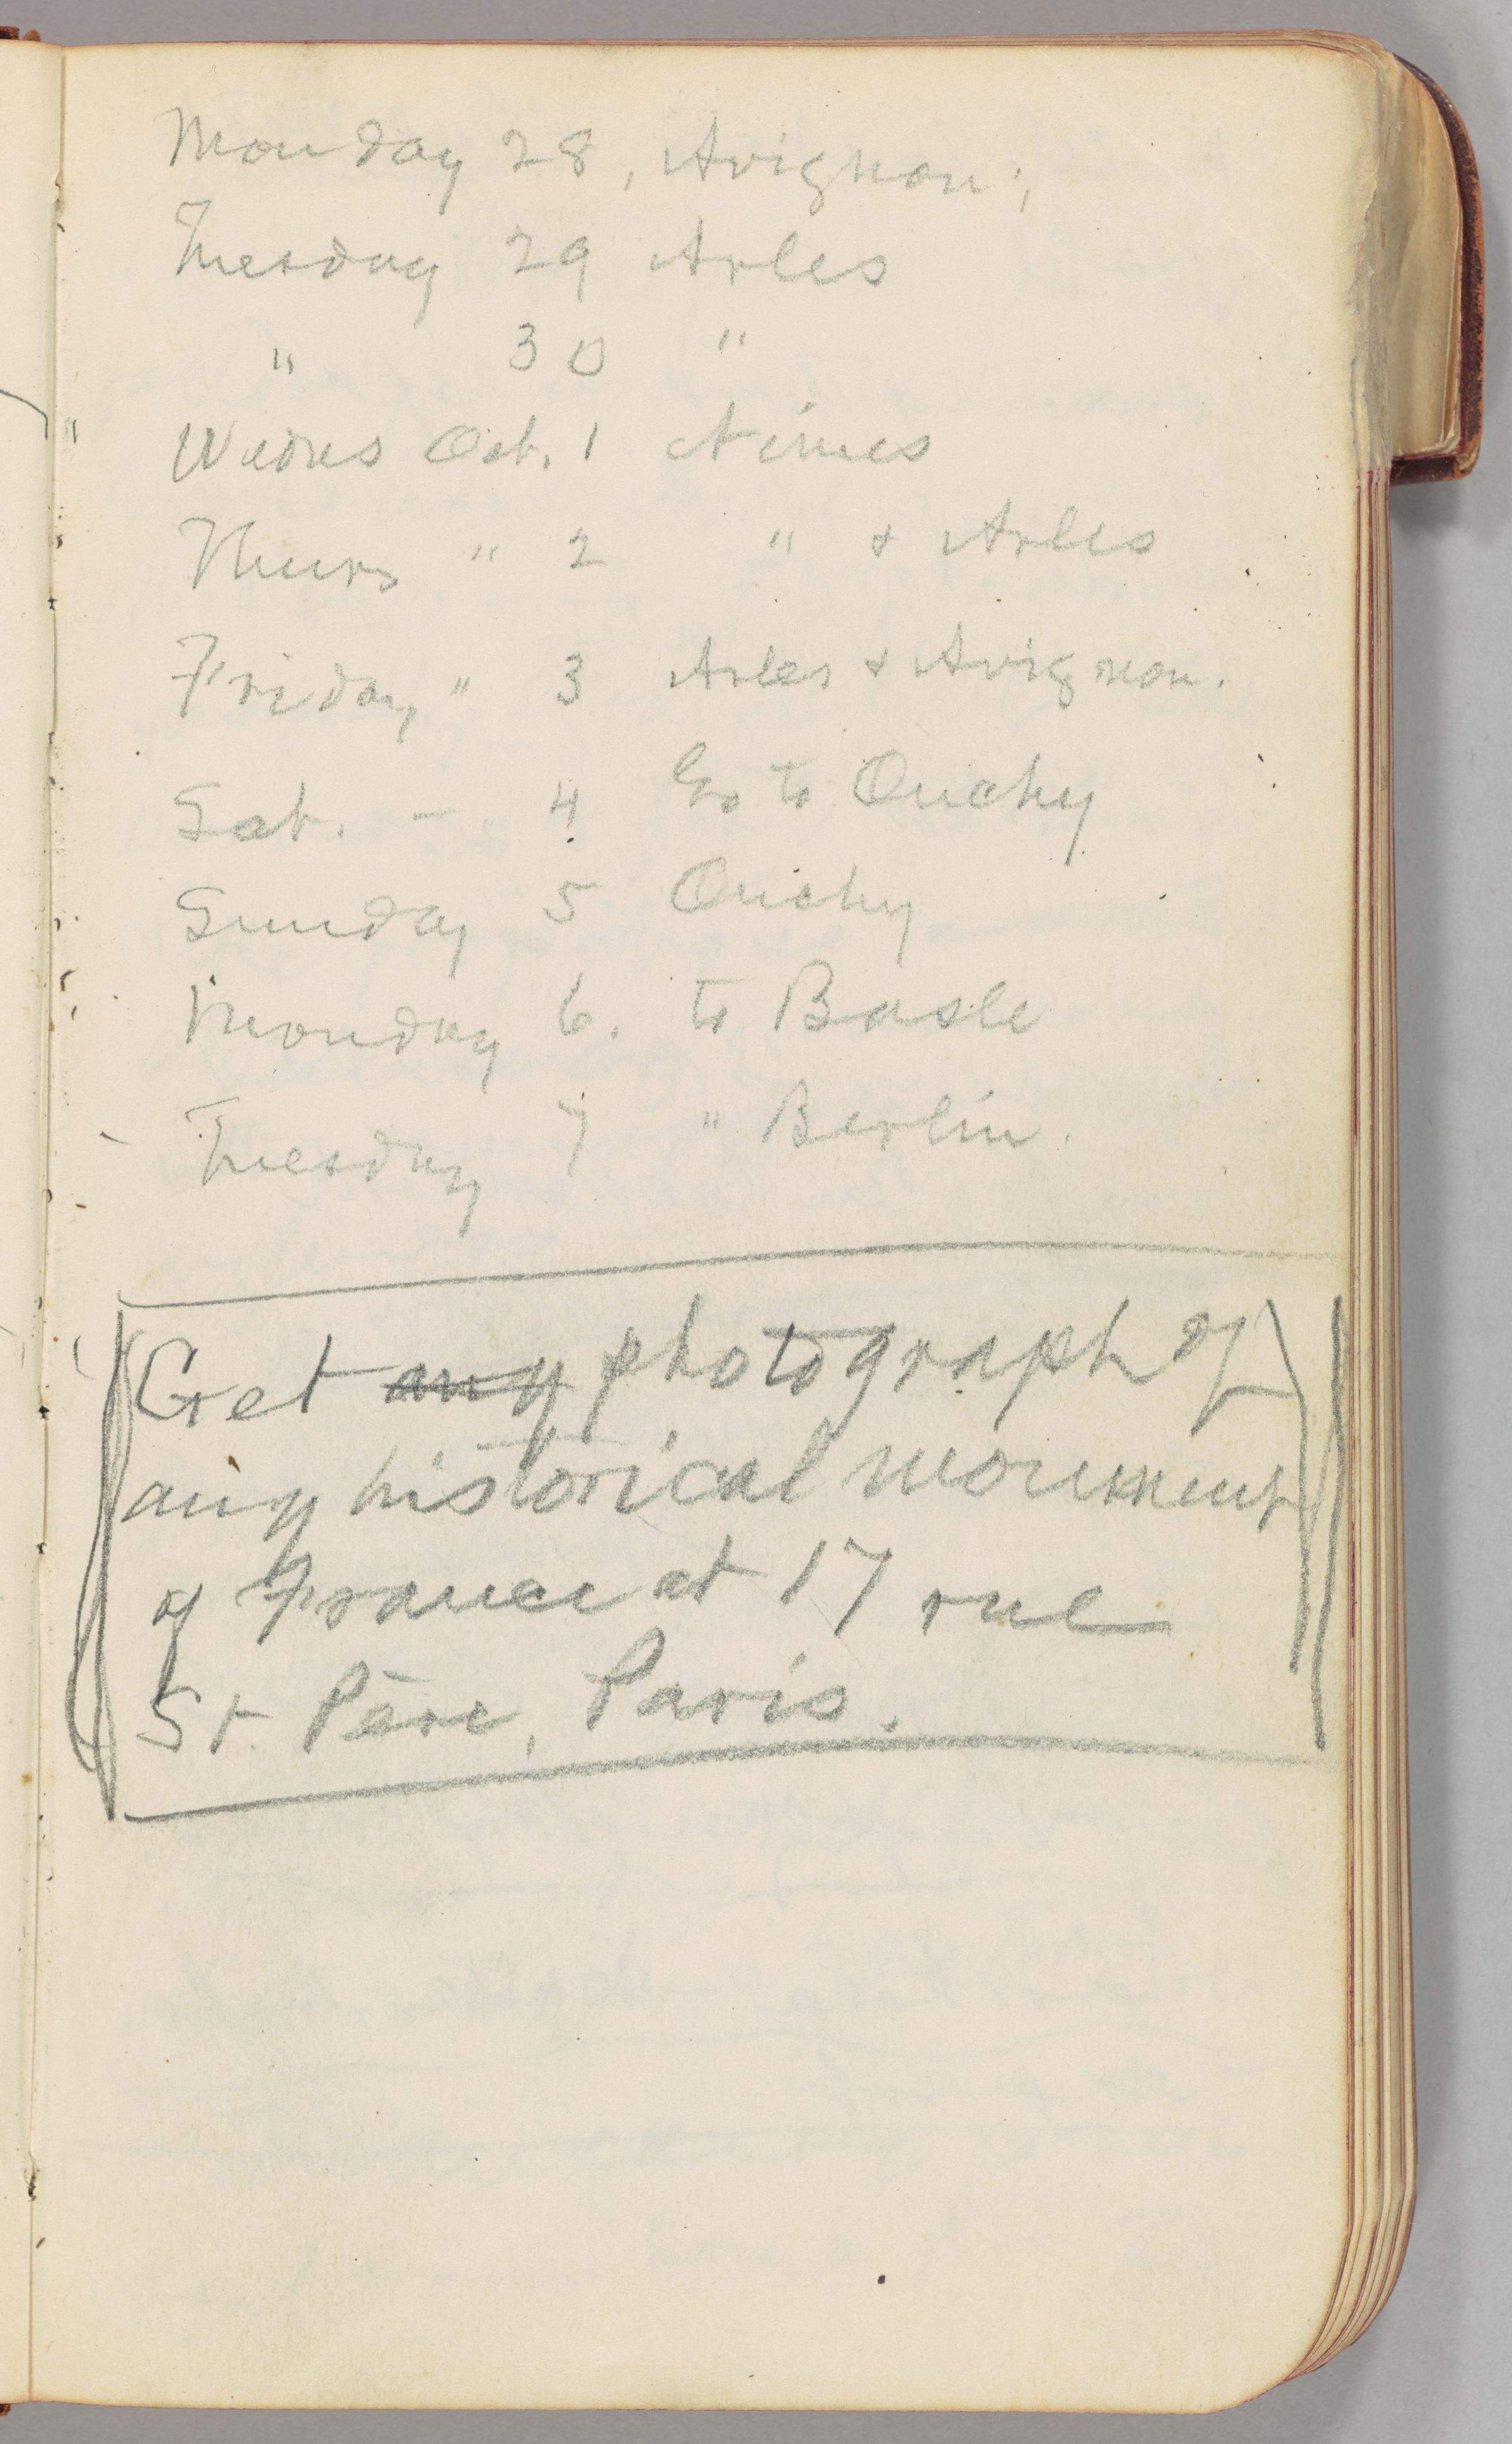 Monday 28, Avignon;
Tuesday 29 Arles
" 30 "
Wednes Oct. 1 Nimes
Thurs " 2 " & Arles
Friday " 3 Arles & Avignon.
Sat. - 4 Go to Ouchy
Sunday 5 Ouchy
Monday 6. to Basle
Tuesday 7 " Berlin.
Get any photograph of
any historical monument
of France at 17 rue
St. Père, Paris.